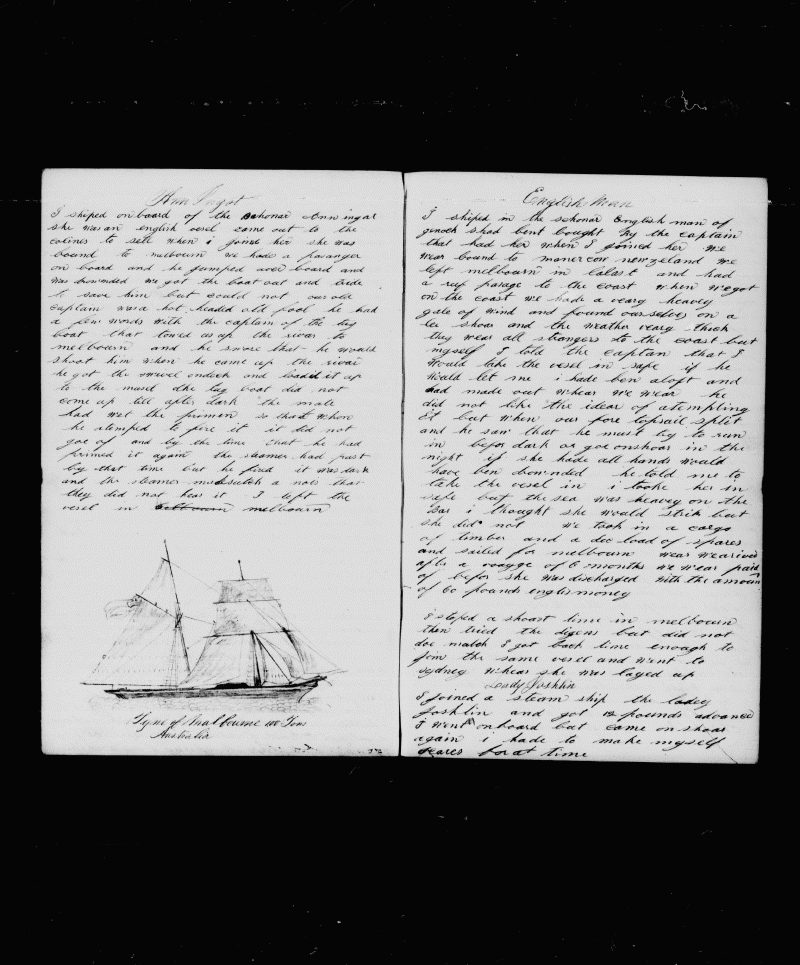 Ann Ingot
I shiped on board of the Schonar Ann ingar
she was an english vesel come out to the
colines to sell when i joned her she was
bound to melbourn we hade a pasanger
on board and he jumped over board and
was drownded we got the boat out and tride
to save him but could not our old
captain was a hot headed old fool he had
a few words with the captain of the tug
boat that towed us up the river to
melbourn and he swore that he would
shoot him when he came up the rivar
he got the ondeck and loaded it up
to the mused the tug boat did not
come up till after dark the mate
had wet the primen so that when
he atemped to fire it it did not
goe of and by the time that he had
primed it again the steamer had past
by that time but he fired it was dark
and the steamer made sutch a nois that
they did not hear it I left the
vesel in melbourn
Tipe of Mal bourne 100 Tons
Australia
English Man
I shiped in the schonar English man of
shad bent bought by the captain
that had her when I joined her we
wear bound to new zeland we
left melbourn in balast and had
a ruf pasage to the coast when we got
on the coast we hade a veary heavey
gale of wind and found ourselves on a
lee shoar and the weather veary thick
they wear all strangers to the coast but
myself I told the captan that I
would take the vesel in safe if he
would let me i hade ben aloft and
had made out whear we wear he
did not like the idear of atempting
it but when our fore topsail split
and he saw that he must try to run
in befor dark or goe onshoar in the
night if she hade all hands would
have ben drownded he told me to
take the vesel in i tooke her in
safe but the sea was heavey on the
Bar i thought she would strik but
she did not we took in a cargo
of timber and a dec load of spares
and sailed for melbourn wear we arived
after a voayge of 6 months we wear paid
of befor she was discharged with the amount
of 60 pounds englis money
I stoped a shoart time in melbourn
then tried the digens but did not
doe match I got back time enough to
join the same vesel and went to
sydney whear she was layed up
Lady Joshlin
I joined a steam ship the ladey
Joshlin and got 12 pounds advance
I went onboard but came on shoar
again i hade to make myself
scares for at time